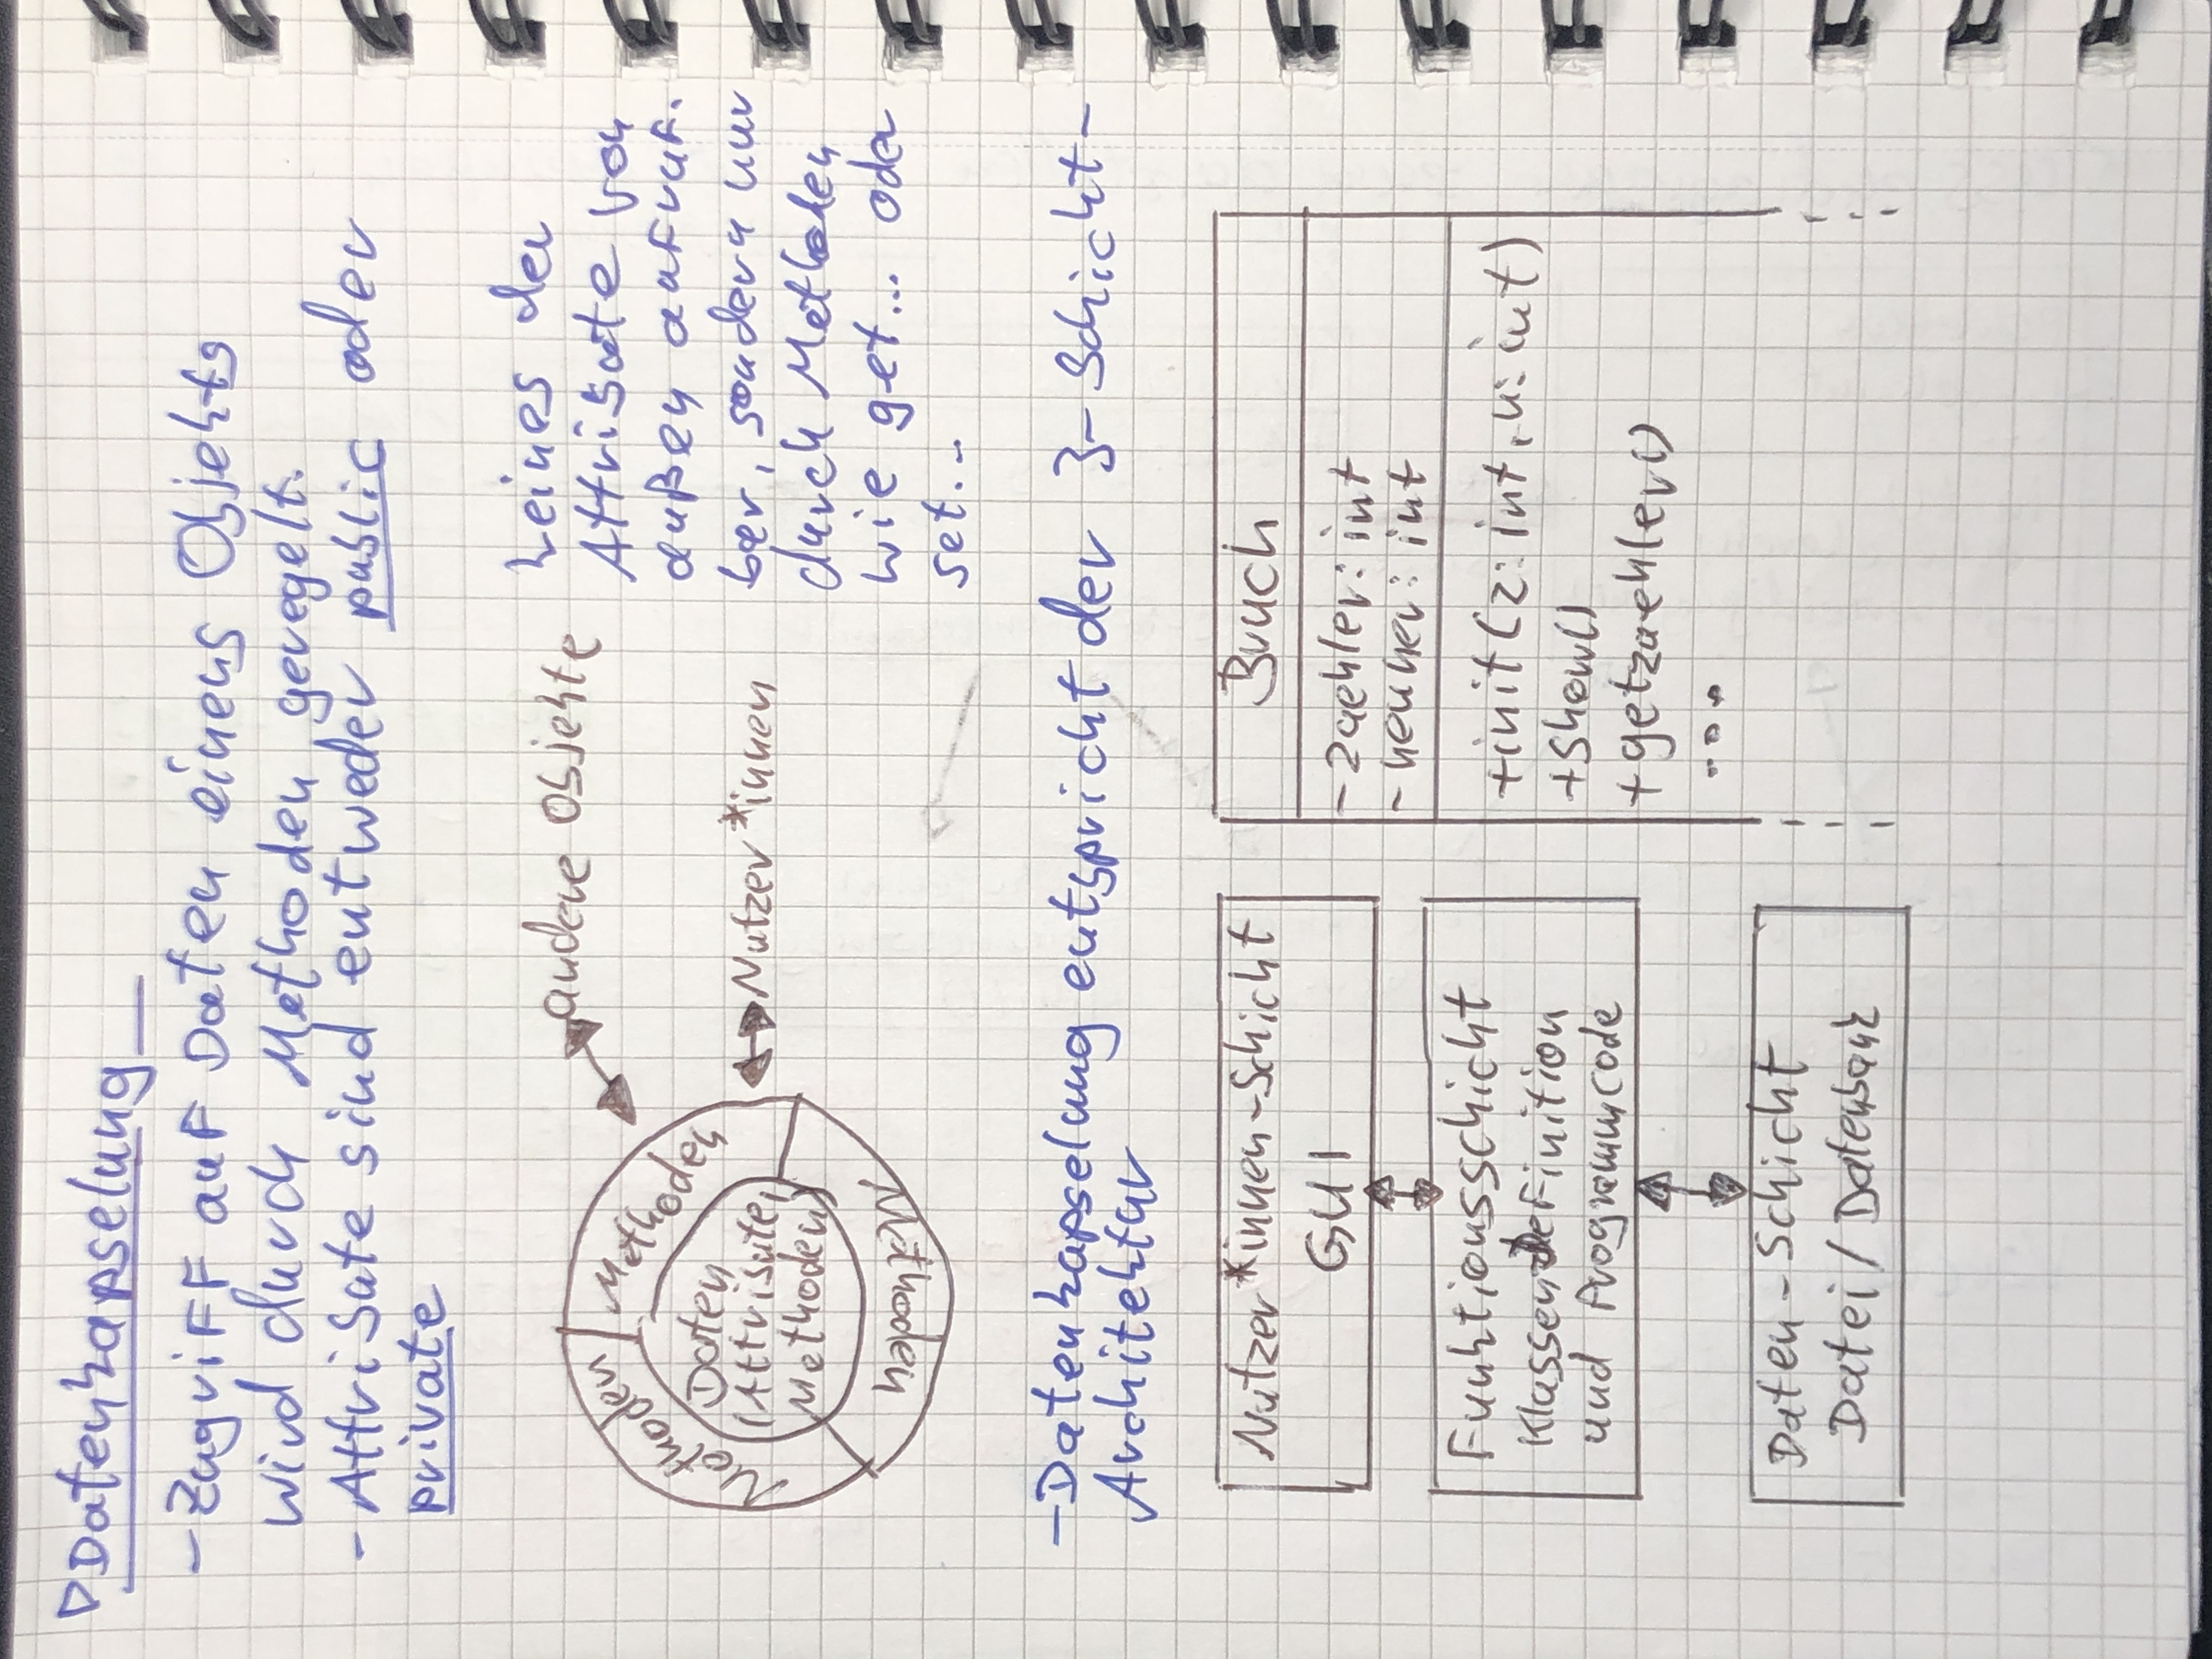 ▷ Datenkapselung
- Zugriff auf Daten einens Objekts
wird durch Methoden geregelt.
- Attribute sind entweder public oder
private
andere Objekte
Methoden
Methoden
Daten
(Attribute,
Methoden)
Methoden
Nutzer*innen
keines der
Attribute von
außen aufruf-
bar, sondern nur
durch Methoden
wie get... oder
set...
- Datenkapselung entspricht der 3-Schicht-
Architektur
Nutzer*innen-Schicht
GUI
Funktionsschicht
Klassendefinition
und Programmcode
Daten-Schicht
Datei / Datenbank
Bruch
- zaehler: int
- nenner: int
+init(z: int, n: int)
+show()
+getzaehler()
...